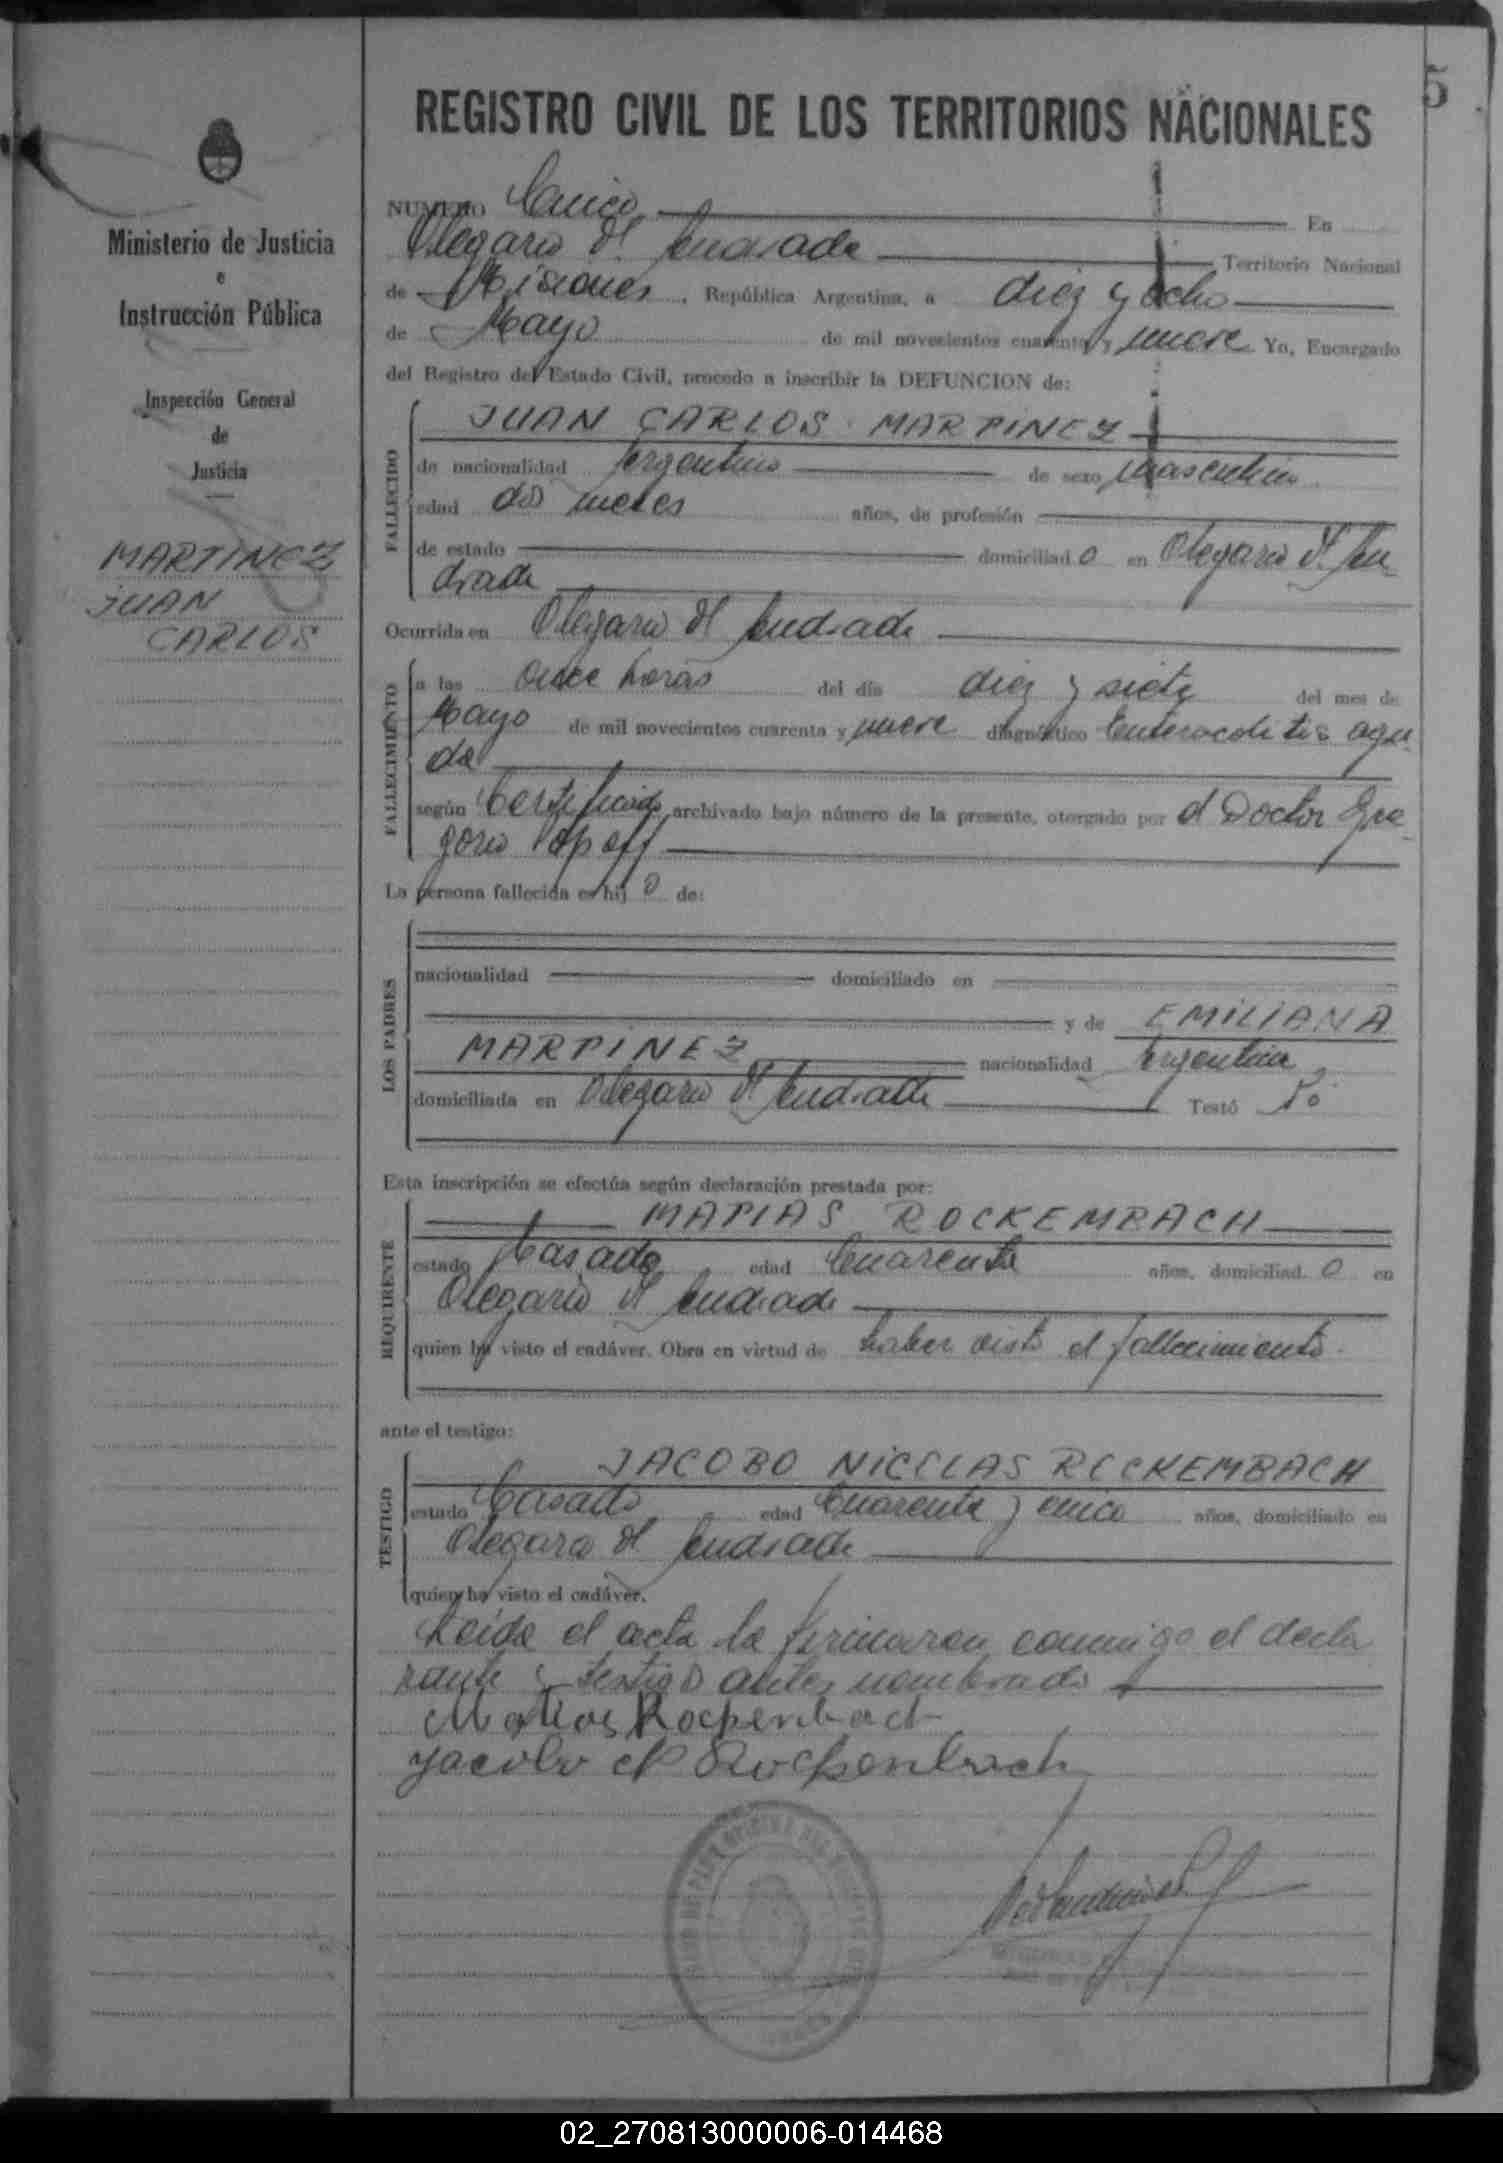 5
REGISTRO CIVIL DE LOS TERRITORIOS NACIONALES
Ministerio de Justicia
e
Instrucción Pública
Inspección General
de
Justicia
MARTINEZ
JUAN
CARLOS
NUMERO Cinco En
Olegario V. Andrade Territorio Nacional
de Misiones, República Argentina, a diez y ocho
de Mayo de mil novecientos cuarenta y nueve Yo, Encargado
del Registro del Estado Civil, procedo a inscribir la DEFUNCION de:
FALLECIDO
JUAN CARLOS MARTINEZ
de nacionalidad Argentino de sexo masculino
edad dos meses años, de profesión
de estado domiciliad o en Olegario V. An-
drade
Ocurrida en Olegario V Andrade
FALLECIMIENTO
a las once horas del día diez y siete del mes de
Mayo de mil novecientos cuarenta y nueve diagnóstico Enterocolitis agu
da
según Certificado archivado bajo número de la presente, otorgado por el Doctor Gre-
gorio Popoff
La persona fallecida es hij o de:
LOS PADRES
nacionalidad domiciliado en
y de EMILIANA
MARTINEZ nacionalidad Argentina
domiciliada en Olegario V Andrade Testó No
Esta inscripción se efectúa según declaración prestada por:
REQUIRENTE
MATIAS ROCKEMBACH
estado Casado edad Cuarenta años, domiciliad o en
Olegario V Andrade
quien ha visto el cadáver. Obra en virtud de haber visto el fallecimiento.
ante el testigo:
TESTIGO
JACOBO NICOLAS ROCKEMBACH
estado Casado edad Cuarenta y cinco años, domiciliado en
Olegario V Andrade
quien ha visto el cadáver.
Leída el acta la firmaron conmigo el decla
rante y testigo antes nombrado
Matias Rockenbach
Jacobo N Rockenbach
02_270813000006-014468